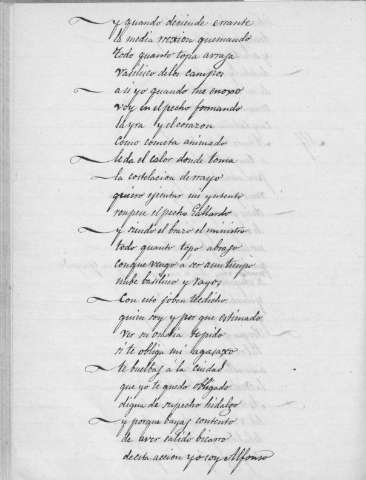 y quando deciende errante
la media rexion quemando
todo quanto topa arrasa
vasilico de los campos
asi yo quando me enoxo
voy en el pecho formando
la yra y el corazon
como cometa animado
le da el calor donde toma
la costelacion de rayo
quiero ejecutar mi yntento
rompese el pecho Gallardo
y siendo el brazo el ministro
todo quanto topo abraso
con que vengo á ser a un tiempo
nube basilico y rayos
Con esto joben te e dicho
quien soy y por que estimado
ver su osadia te pido
si te obliga mi agasaxo
te buelbas á la ciudad
que yo te quedo obligado
digna de su pecho hidalgo
y porque bayas contento
de aver salido bizarro
de esta accion yo soy Alfonso